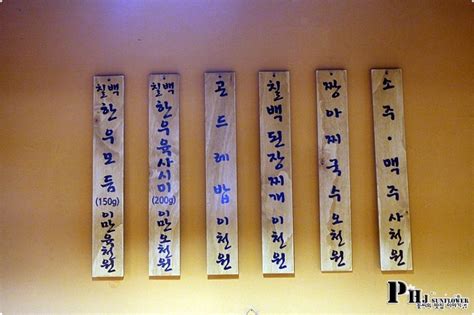 칠백 한우모둠 (150g) 이만육천원
칠백 한우육사시미 (200g) 이만오천원
곤드레밥 이천원
칠백 된장찌개 이천원
짱아찌국수 오천원
소주·맥주 사천원
PHJ SUNFLOWER